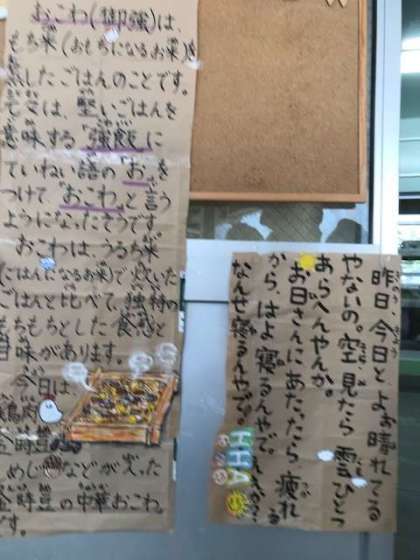 おこわ(御強)は、
もち米(おもちになるお米)を
蒸したごはんのことです。
元々は、堅いごはんを
意味する"強飯"に
ていねい語の"お"を
つけて"おこわ"と言う
ようになったそうです
おこわは、うるち米
(ごはんになるお米)で炊いた
ごはんと比べて、独特の
もちもちとした食感と
甘味があります。
今日は
鶏肉
金時豆
しめじなどが入った
金時豆の中華おこわ
です。
昨日、今日と、よぉ晴れてる
やないの。空、見たら雲ひとつ
あらへんやんか。
お日さんにあたったら、疲れる
から、はよ寝るんやで。
なんせ寝るんやで。